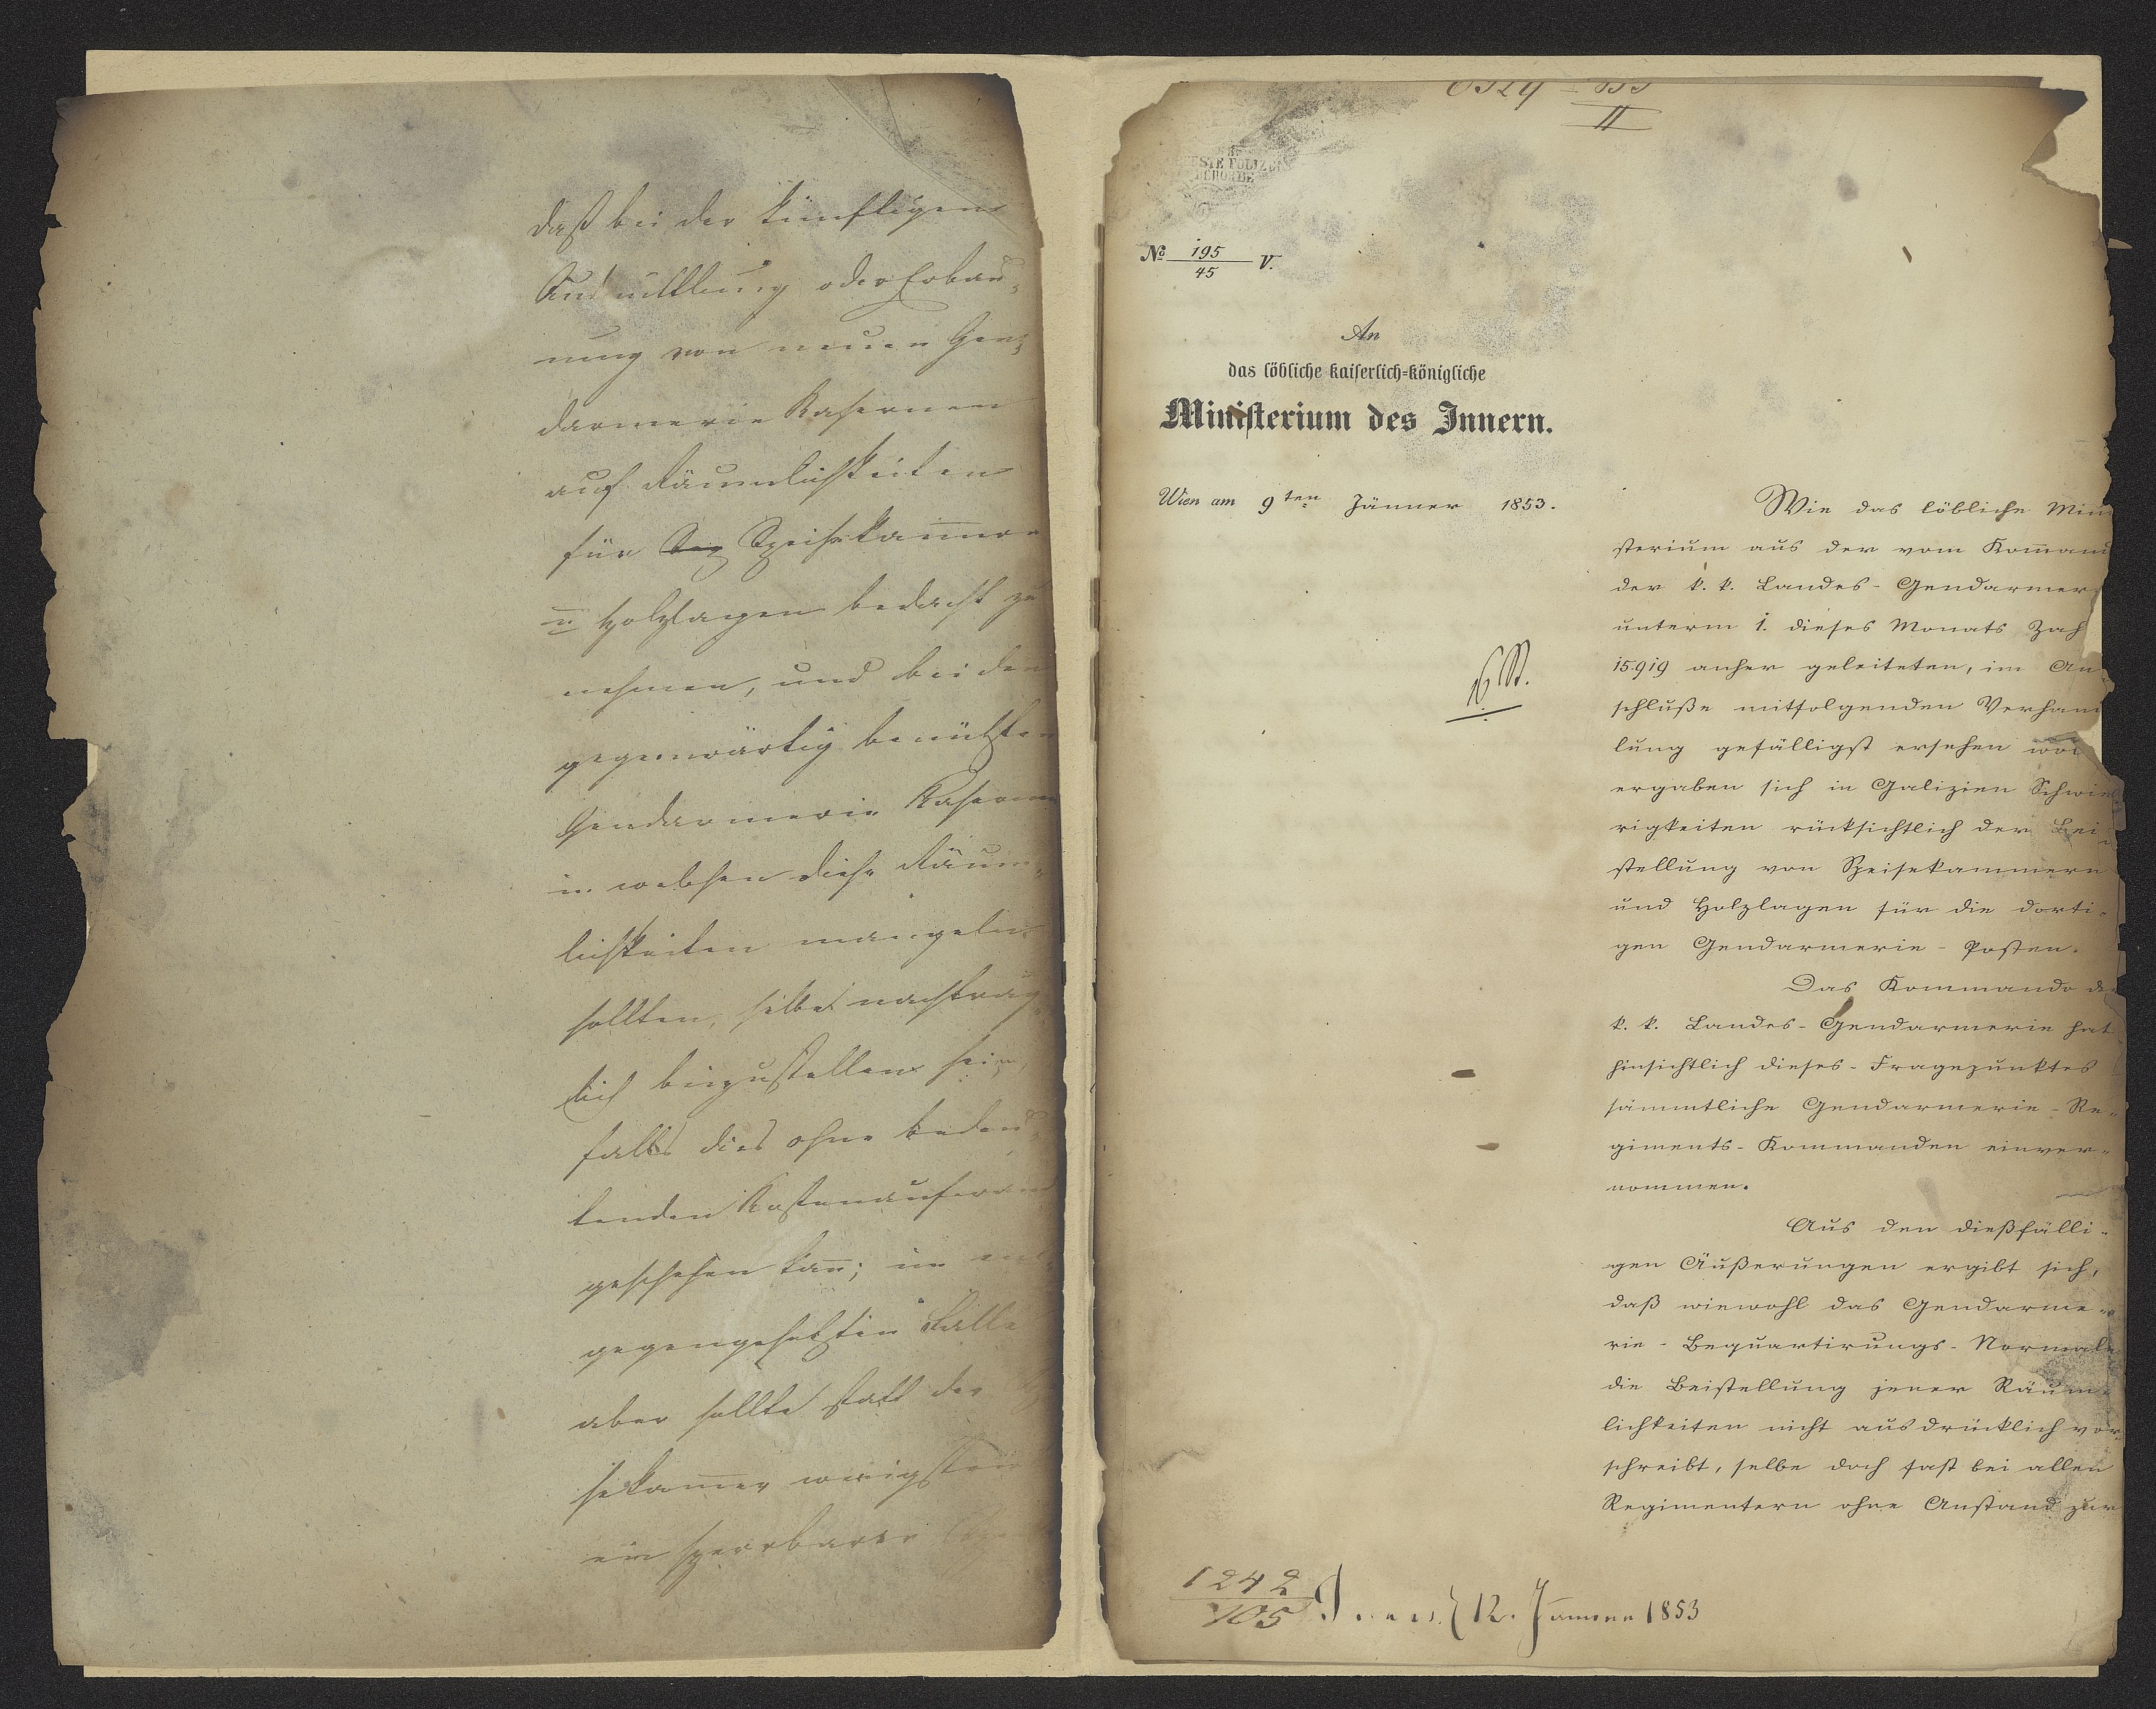 daß bei der künftigen
Ausmittlung oder Erbau-
ung von neuen Gen-
darmerie Kasernen
auf Räumlichkeiten
für Speisekam̅er
u̅ Holzlagen bedacht zu
nehmen, und bei den
gegenwärtig benützten
Gendarmerie Kasernen
in welchen diese Räum-
lichkeiten mangeln
sollten, selbe nachträg-
lich beizustellen seien,
falls dies ohne bedeu-
tenden Kostenaufwand
geschehen kan̅; im ent-
gegengesetzten Falle
aber sollte statt der
sekam̅er wenigstens
ein sperrbarer
II
STE POLIZEI
BEHÖRDE
№ 195/45 V.
An
das löbliche kaiserlich-königliche
Ministerium des Innern.
Wien am 9ten Jänner 1853.
Wie das löbliche Mini
sterium aus der vom Kom̅and
der k. k. Landes-Gendarmer
unterm 1. dieses Monats Zah
15919 anher geleiteten, im An-
schluße mitfolgenden Verhand
lung gefälligst ersehen wol
ergaben sich in Galizien Schwie-
rigkeiten rücksichtlich der Bei-
stellung von Speisekammern
und Holzlagen für die dorti-
gen Gendarmerie-Posten.
Das Kommando der
k. k. Landes-Gendarmerie hat
hinsichtlich dieses-Fragepunktes
sämmtliche Gendarmerie-Re-
giments-Kommanden einver-
nommen.
Aus den dießfälli-
gen Äußerungen ergibt sich,
daß wiewohl das Gendarme-
rie-Bequartirungs-Normale
die Beistellung jener Räum-
lichkeiten nicht ausdrücklich vor-
schreibt, selbe doch fast bei allen
Regimentern ohne Anstand zur
1242/105 12. Jänner 1853